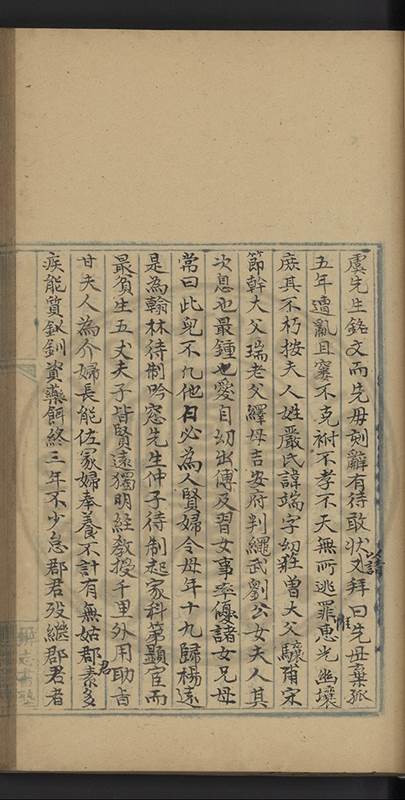 虞先生銘文而先母刻辭有待敢狀以請又拜曰先母棄孤
五年遭亂且窶不克祔不孝不天無所逃罪惠光幽壤
庶其不朽按夫人姓嚴氏諱端字幼莊曾大父驥甫宋
節幹大父瑞老父繹母吉安府判繩武劉公女夫人其
次息也最鍾也愛自幼出傅及習女事率優諸女兄母
常曰此兒不凡他日必為人賢婦令母年十九歸楊遠
是為翰林待制吟窓先生仲子待制起家科第顯宦而
最貧生五丈夫子皆賢遠獨明經教授千里外用助旨
甘夫人為介婦長能佐冢婦奉養不計有無姑郡君素多
疾能質釵釧資藥餌終三年不少怠郡君歿繼郡君者